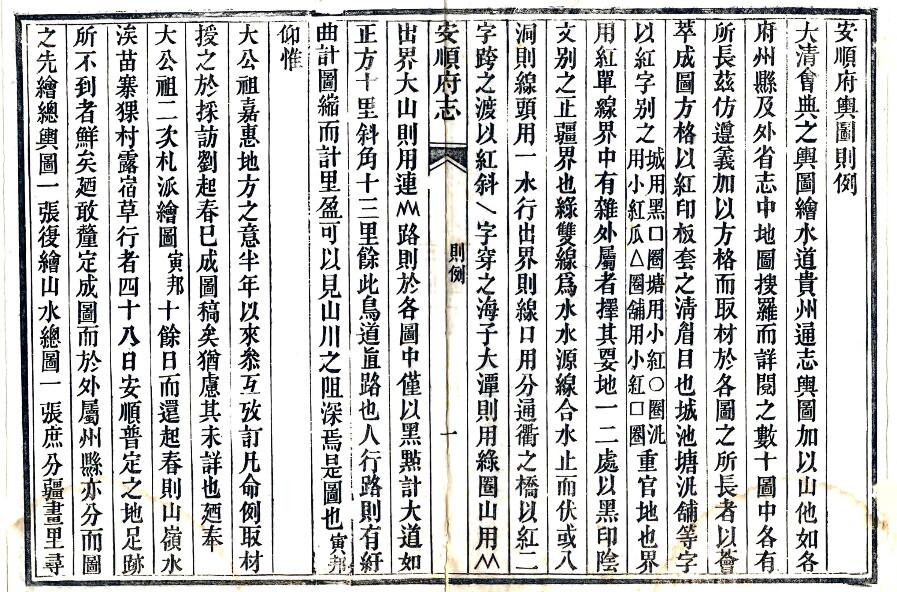 安順府輿圖則例
大清會典之輿圖繪水道貴州通志輿圖加以山他如各
府州縣及外省志中地圖搜羅而詳閱之數十圖中各有
所長茲仿遵義加以方格而取材於各圖之所長者以薈
萃成圖方格以紅印板套之清眉目也城池塘汛舖等字
以紅字别之城用黑口圈塘用小紅〇圈汛用小紅瓜△圈舖用小紅口圈重官地也界
用紅單線界中有雜外屬者擇其要地一二處以黑印陰
文别之正疆界也綠雙線爲水水源線合水止而伏或入
洞則線頭用一水行出界則線口用分通衢之橋以紅二
字跨之渡以紅斜乀字穿之海子大潭則用綠圈山用⩕⩕
安順府志
則例
一
出界大山則用連⩕⩕路則於各圖中僅以黑㸃計大道如
正方十里斜角十三里餘此鳥道直路也人行路則有紆
曲計圖縮而計里盈可以見山川之阻深焉是圖也寅邦
仰惟
大公祖嘉惠地方之意半年以來叅互攷訂凡命例取材
授之於採訪劉起春已成圖稿矣猶慮其未詳也廼奉
大公祖二次札派繪圖寅邦十餘日而還起春則山嶺水
涘苗寨猓村露宿草行者四十八日安順普定之地足跡
所不到者鮮矣廼敢釐定成圖而於外屬州縣亦分而圖
之先繪總輿圖一張復繪山水總圖一張庶分疆畫里尋